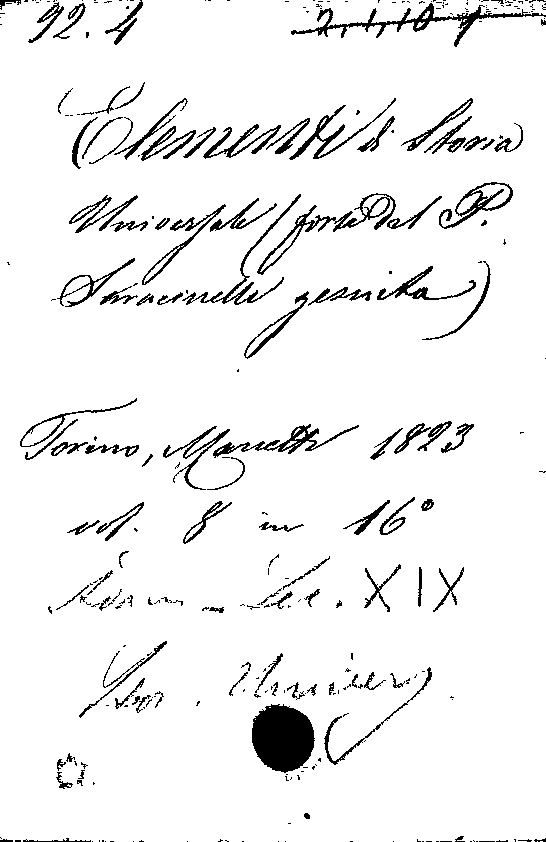 92. 4 2, 1, 10
Elementi di Storia
Universale (forse dal P.
Saracinelli gesuita)
Torino, Marietti 1823
vol. 8 in 16°
Sec. XIX
Stor. Univers.